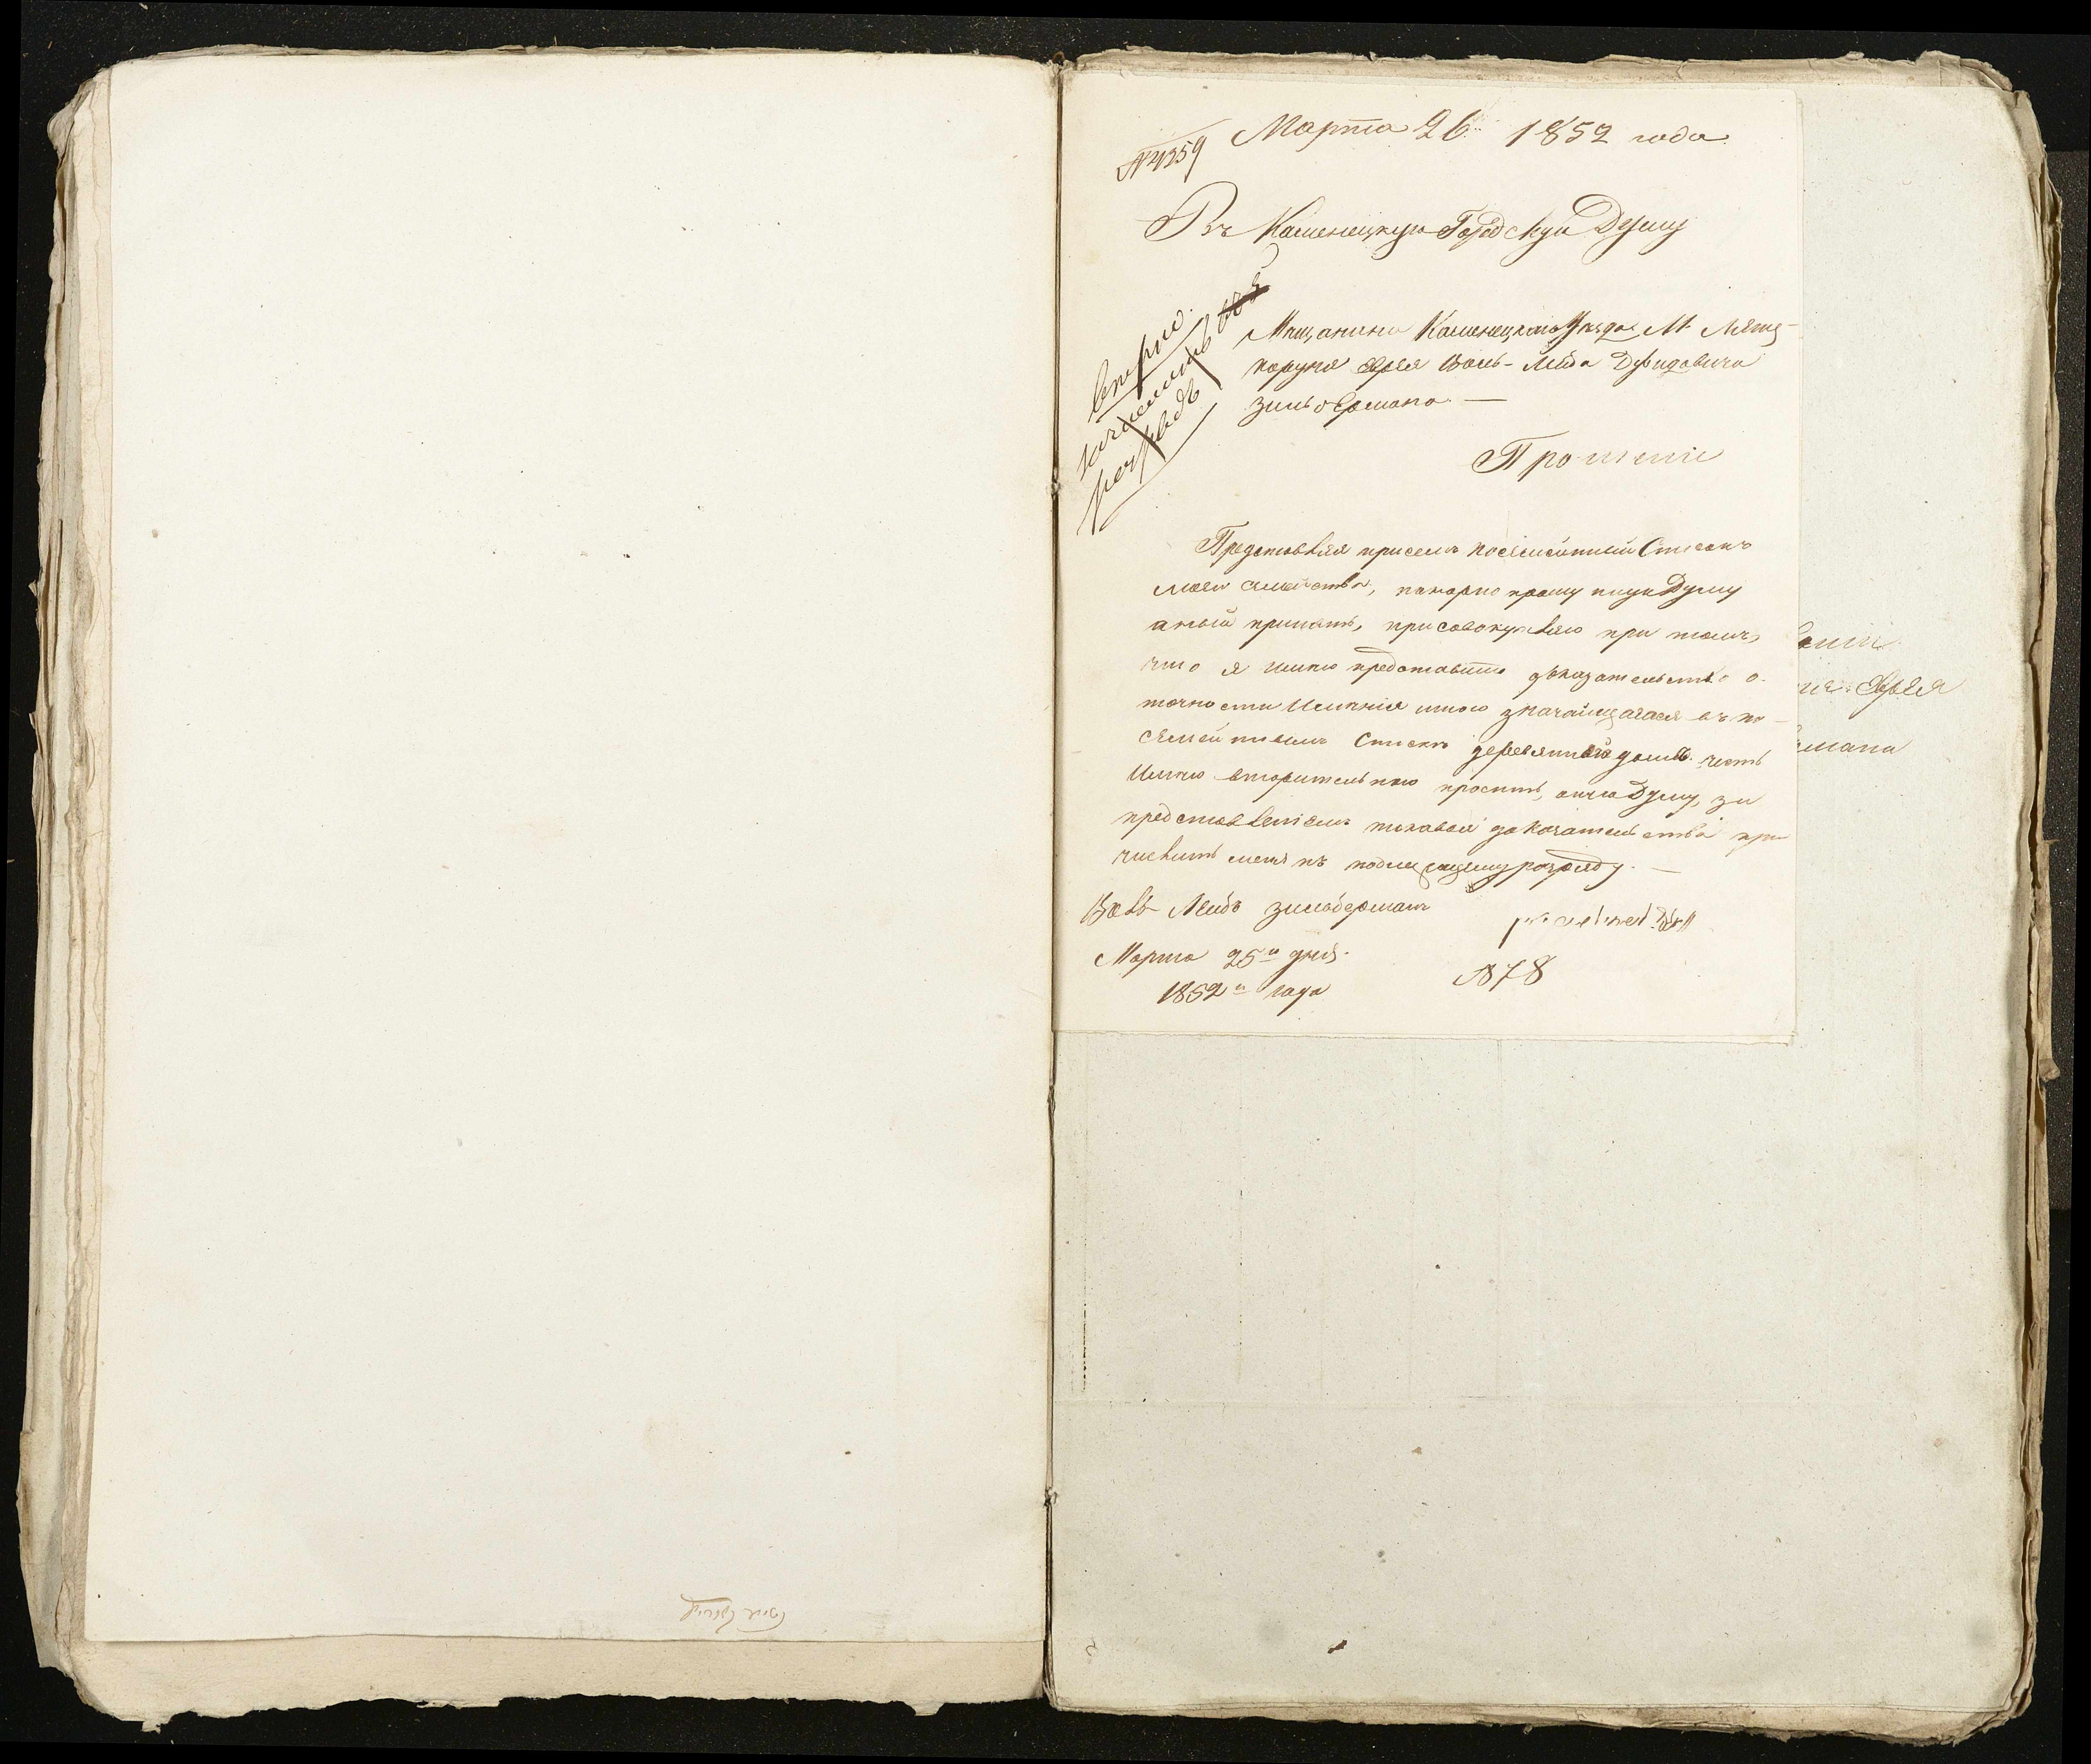 Марта 26 1852 года
№ 4359
Въ Каменецкую Городскую Думу
Мѣщанина Каменецкаго Уѣзда М. Лянц-
коруня Еврея Вовь-Лейба Дувидовича
Зильбермана. —
Прошеніе
Представляя присемъ посемейный Списокъ
моего семейства, покорно прошу оную Думу
оный принять, присовокупляю при томъ,
что я имѣю представить доказательство о
точности Имѣнія мною значащагося въ по-
семейномъ Спискѣ деревяннаго дома. честь
Имѣю вторительно просить, оную Думу, за
представленіемъ таковой доказательства при
числить меня къ подлежащему разряду. —
Вовъ Лейбъ Зильберманъ
Марта 25го дня.
1852го года
№ 78
еніе
Еврея
мана